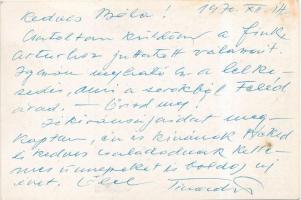 Kedves Béla! 1970. XII. 14
küldöm a
Arturhoz juttatott válaszait
Igazán megható az a lelke-
sedés, ami a sorokból Feléd
árad. — Őrizd meg!
Jókívánságaidat meg-
kaptam, én is kívánok Neked
és kedves családodnak kelle-
mes ünnepeket és boldog új
évet. Ölel